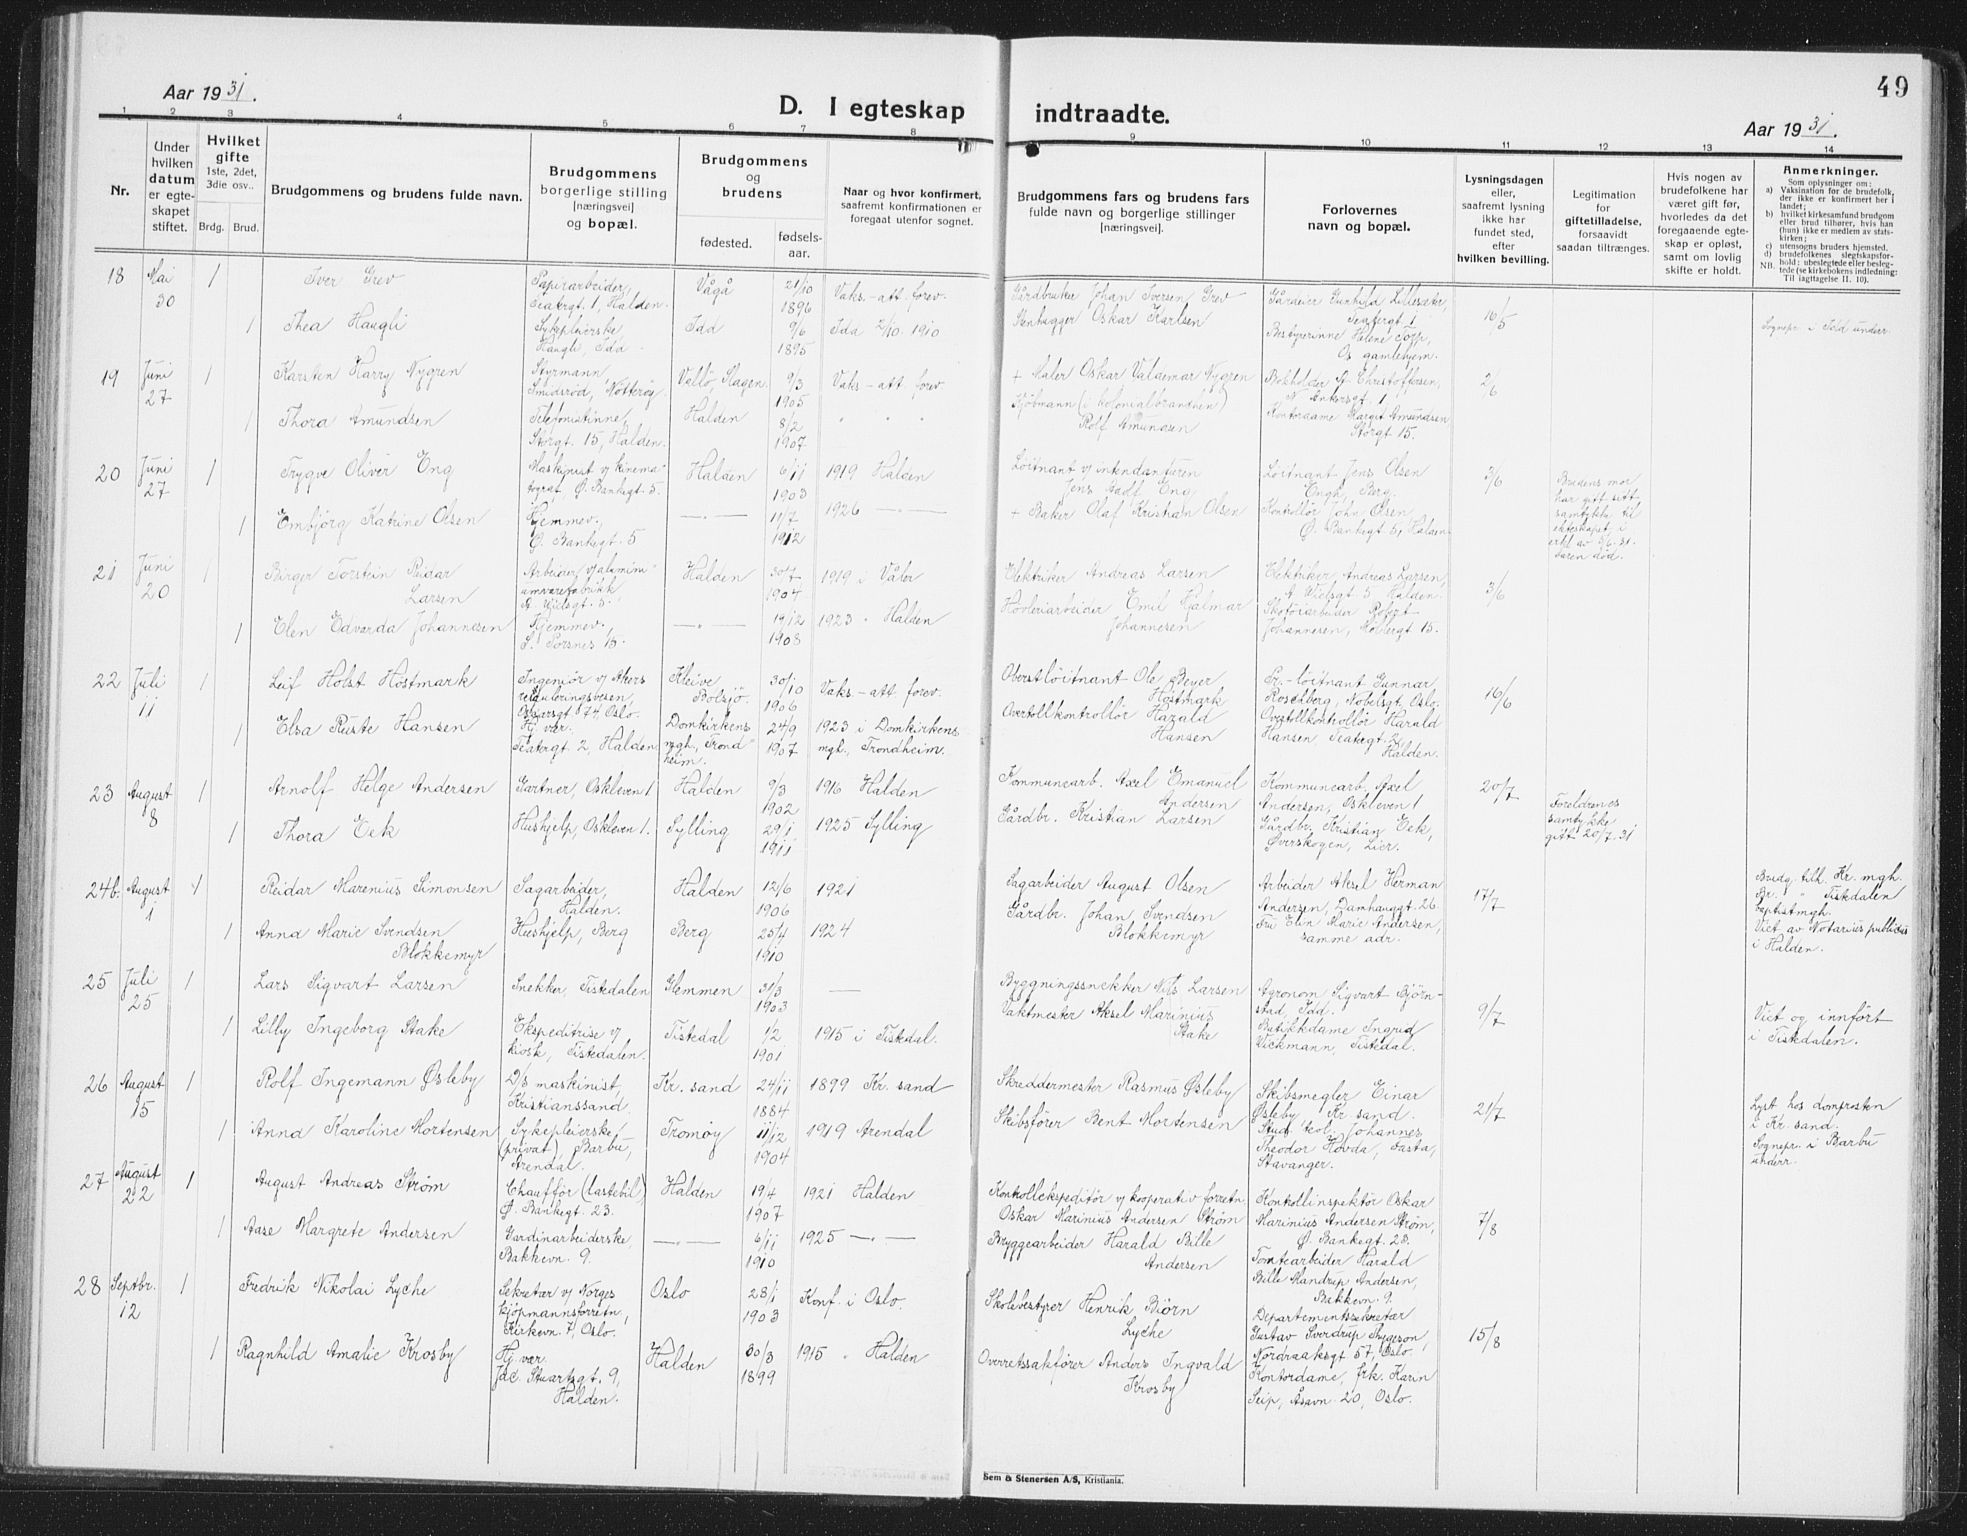 49
Aar 1931.
D. I egteskap indtraadte.
Aar 1931.
1 2 3 4 5 6 7 8 9 10 11 12 13 14
Nr.
Under
hvilken
datum
er egte-
skapet
stiftet.
Hvilket
gifte
1ste, 2det,
3die osv..
Brdg. Brud.
Brudgommens og brudens fulde navn.
Brudgommens
borgerlige stilling
[næringsvei]
og bopæl.
Brudgommens
og
brudens
fødested.
fødsels-
aar.
Naar og hvor konfirmert,
saafremt konfirmationen er
foregaat utenfor sognet.
Brudgommens fars og brudens fars
fulde navn og borgerlige stillinger
[næringsvei].
Forlovernes
navn og bopæl.
Lysningsdagen
eller,
saafremt lysning
ikke har
fundet sted,
efter
hvilken bevilling.
Legitimation
for
giftetilladelse,
forsaavidt
saadan tiltrænges.
Hvis nogen av
brudefolkene har
været gift før,
hvorledes da det
foregaaende egte-
skap er opløst,
samt om lovlig
skifte er holdt.
Anmerkninger.
Som oplysninger om:
a) Vaksination før de brudefolk,
der ikke er konfirmert her i
landet;
b) hvilket kirkesamfund brudgom
eller brud tilhører, hvis han
(hun) ikke er medlem av stats-
kirken;
c) utensogns bruders hjemsted.
d) brudefolkenes slegtskapsfor-
hold; ubeslegtede eller besleg-
tede (se kirkebokens indledning:
NB. Til iagttagelse II. 10).
18 Mai 30
1 Iver Grev
Papirarbeider,
Teatergt. 1, Halden.
Vågå
21/10 1896
Vaks.-att. forev.
Gårdbruker Johan Iversen Grev
Gårdeier Gunhild Lillesæter,
Teatergt. 1
16/5
1 Thea Haugli
Sykepleierske,
Haugli, Idd.
Idd
9/6 1895
Idd 2/10 1910
Stenhugger Oskar Karlsen
Bestyrerinne Helene Topp,
Os gamlehjem.
Sognepr. i Idd underr.
19 Juni 27
1 Karsten Harry Nygren
Styrmann
Smidsrød, Nøtterøy.
Vallö Slagen.
9/3 1905
Vaks-att forev
+ Maler Oskar Valdemar Nygren
Bokholder A. Christoffersen,
N. Ankersgt. 1
2/6
1 Thora Amundsen
Telefonistinne,
Storgt. 15, Halden.
Halden
8/2 1907
Kjøbmann (i kolonialbranchen)
Rolf Amundsen
Kontordame Margit Amundsen
Storgt 15.
20 Juni 27
1 Trygve Oliver Eng
Maskinist v/ kinema-
tograf, Ø. Bankegt. 5.
Halden
6/11 1903
1919 Halden
Løitnant v/ intendanturen
Jens Adolf Eng
Løitnant Jens Olsen
Engh, Berg.
3/6
Brudens mor
har gitt sitt
samtykke til
ekteskapet i
erkl av 3/6.31.
Faren død.
1 Embjørg Katrine Olsen
Hjemmev.
Ø. Bankegt. 5
—"—
11/7 1912
1926 —"—
+ Baker Olaf Kristian Olsen
Kontrollør John Olsen
Ø. Bankegt 5, Halden.
21 Juni 20
1 Birger Torstein Reidar
Larsen
Arbeider v/ alumini-
umvarefabrikk
A. Wielsgt. 5.
Halden
30/7 1904
1919 i Våler
Elektriker Andreas Larsen
Elektriker Andreas Larsen,
A. Wielsgt 5, Halden.
3/6
1 Elen Edvarda Johannesen
Hjemmev.
S. Torsnes 15.
—"—
19/12 1908
1923 " Halden
Høvleriarbeider Emil Hjalmar
Johannesen
Skotøiarbeider Robert
Johannesen, Holbergt 15.
22 Juli 11
1 Leif Holst Høstmark
Ingeniør v/ Akers
reguleringsvesen,
Oskarsgt 74, Oslo.
Kleive
Bolsjö.
30/10 1906
Vaks-att forev.
Oberstløitnant Ole Beyer
Høstmark
Pr.-løitnant Gunnar
Rosenberg, Nobelsgt, Oslo.
16/6
1 Elsa Ruste Hansen
Hj. vær.
Teatergt 2, Halden
Domkirkens
mgh., Trond-
heim.
24/9 1907
1923 i Domkirkens
mgh., Trondheim.
Overtollkontrollør Harald
Hansen
Overtollkontrollør Harald
Hansen Teatergt 2,
Halden.
23 August 8
1 Arnolf Helge Andersen
Gartner, Oskleven 1
Halden
9/3 1902
1916 Halden
Kommunearb. Axel Emanuel
Andersen
Kommunearb. Axel
Andersen, Oskleven 1
20/7
Foreldrenes
samtykke
gitt 20/7.31
1 Thora Eek
Hushjelp, Oskleven 1.
Sylling
29/1 1911
1925 Sylling
Gårdbr. Kristian Larsen
Gårdbr. Kristian Eek,
Øverskogen, Lier.
24b. August 1
1 Reidar Marenius Simonsen
Sagarbeider,
Halden.
Halden
12/6 1906
1921
Sagarbeider August Olsen
Arbeider Aksel Herman
Andersen, Damhauggt. 26
17/7
Brudg. tilh. Kr. mgh.
Br. " Tistedalen
baptistmgh.
Viet av Notarius publicus
i Halden.
1 Anna Marie Svendsen
Blokkemyr
Hushjelp, Berg
Berg
25/4 1910
1924
Gårdbr. Johan Svendsen
Blokkemyr
Fru Elen Marie Andersen,
samme adr.
25 Juli 25
1 Lars Sigvart Larsen
Snekker, Tistedalen
Glemmen
31/3 1903
—
Byggningssnekker Nils Larsen
Agronom Sigvart Bjørn-
stad, Idd.
9/7
Viet og innført
i Tistedalen.
1 Lilly Ingeborg Stake
Ekspeditrise v/
kiosk, Tistedalen.
Tistedal
1/2 1901
1915 i Tistedal.
Vaktmester Aksel Marinius
Stake
Butikkdame Ingrid
Wickmann, Tistedal.
26 August 15
1 Rolf Ingemann Øsleby
D/S maskinist,
Kristianssand.
Kr. sand
24/11 1884
1899 Kr. sand
Skreddermester Rasmus Øsleby
Skibsmegler Einar
Øsleby, Kr sand.
21/7
Lyst hos domprosten
i Kr. sand.
Sognepr. i Barbu
underr.
1 Anna Karoline Mortensen
Sykepleierske,
(privat), Barbu,
Arendal.
Tromøy
11/12 1904
1919 Arendal
Skibsfører Bent Mortensen
Stud. teol. Johannes
Theodor Hovda, Tasta,
Stavanger.
27 August 22
1 August Andreas Strøm
Chauffør (lastebil)
Ø. Bankegt. 23.
Halden
19/4 1907
1921 Halden
Kontrollekspeditør v/ kooperativ forretn.
Oskar Marinius Andersen Strøm
Kontrollinspektør Oskar
Marinius Andersen Strøm,
Ø. Bankegt. 23.
7/8
1 Aase Margrete Andersen
Gardinarbeiderske,
Bakkevn. 9.
—"—
6/11 1910
1925 —"—
Bryggearbeider Harald Bille
Andersen
Tomtearbeider Harald
Bille Mandrup Andersen,
Bakkevn. 9.
28 Septbr. 12
1 Fredrik Nikolai Lyche
Sekretær v/ Norges
kjøpmannsforretn,
Kirkevn. 7, Oslo.
Oslo
28/1 1903
Konf. i Oslo.
Skolebestyrer Henrik Biørn
Lyche
Departementssekretær
Gustav Sverdrup Thygeson,
Nordraaksgt 57, Oslo.
15/8
1 Ragnhild Amalie Krosby
Hj. vær.
Jac. Stuartsgt. 9,
Halden.
Halden
30/3 1899
1915 " Halden
Overretssakfører Anders Ingvald
Krosby
Kontordame, frk. Karin
Seip, Åsavn. 20, Oslo.
Sem & Stenersen A/S, Kristiania.